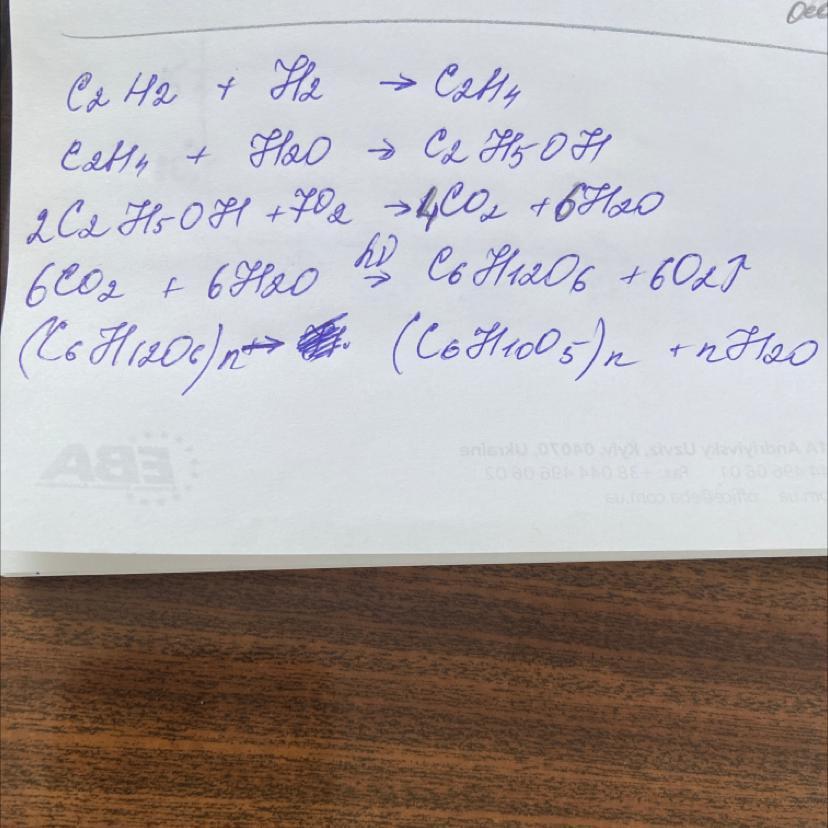 C2H2 + H2 → C2H4
C2H4 + H2O → C2H5OH
2C2H5OH + 7O2 → 4CO2 + 6H2O
6CO2 + 6H2O hν → C6H12O6 + 6O2↑
(C6H12O6)n → (C6H10O5)n + nH2O
EBA
Andriyivsky Uzviz, Kyiv, 04070, Ukraine
496 06 01 Fax: +38 044 496 06 02
office@eba.com.ua